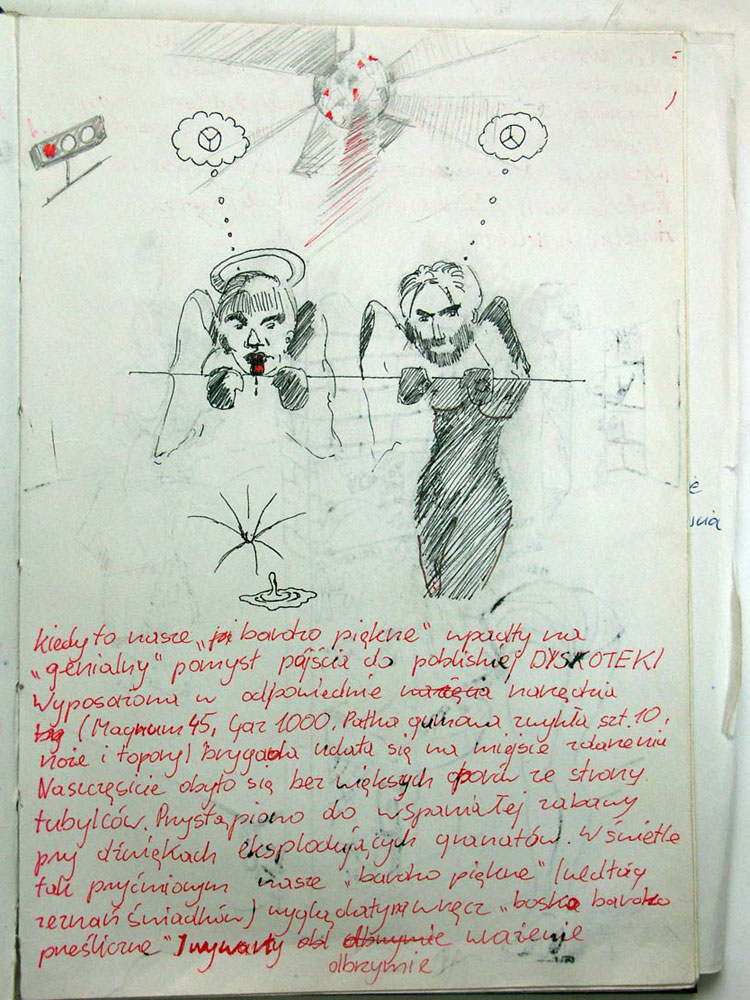 Kiedy to nasze „bardzo piękne" wpadły na
„genialny" pomysł pójścia do pobliskiej DYSKOTEKI
Wyposażona w odpowiednie narzęcia narzędzia
(Magnum 45, Gaz 1000, Pałka gumowa zwykła szt. 10,
noże i topory) brygada udała się na miejsce zdarzenia
Nasczęście obyło się bez większych oporów ze strony
tubylców. Przystąpiono do wspaniałej zabawy
przy dźwiękach eksplodujących granatów. W świetle
tak przyćmionym nasze „bardzo piękne" (według
zeznań świadków) wyglądały wręcz „bosko bardzo
prześliczne" I wywarły olbrzymie wrażenie
olbrzymie